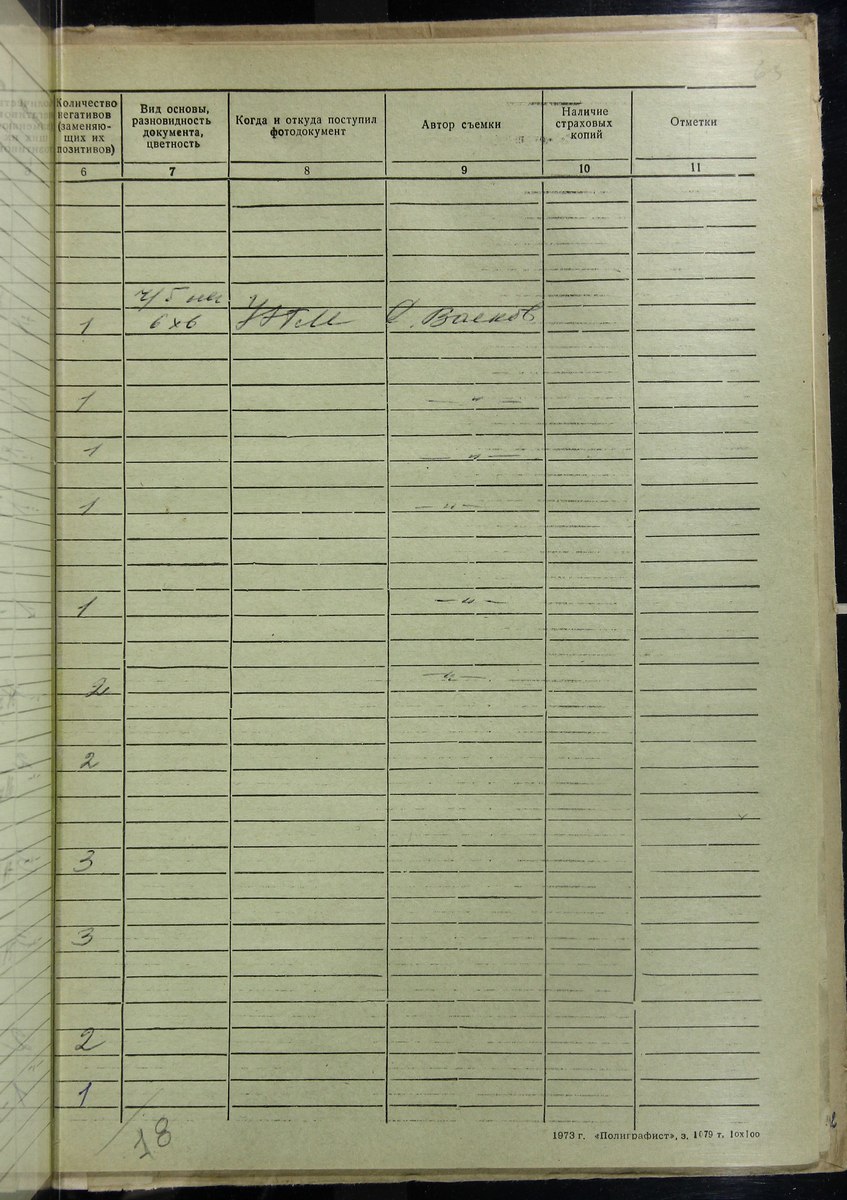 63
Количество
негативов
(заменяю-
щих их
позитивов)
Вид основы,
разновидность
документа,
цветность
Когда и откуда поступил
фотодокумент
Автор съемки
Наличие
страховых
копий
Отметки
6 7 8 9 10 11
ч/б нег
1 6х6 Васков
1 —"—
1 —"—
1 —"—
1 —"—
2 —"—
2
3
3
2
1
18
1973 г. «Полиграфист», з. 1079 т. 10х100